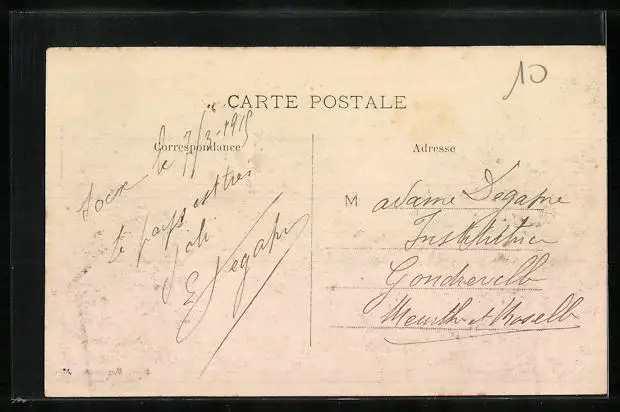 10
CARTE POSTALE
Correspondance
le 7/3-1915
le pays est très
joli
E Degapne
Adresse
M adame Degapne
Institutrice
Gondreville
Meurthe et Moselle